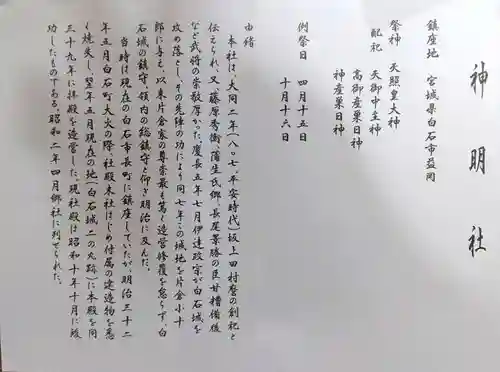 神明社
鎮座地 宮城県白石市益岡
祭神 天照皇大神
配祀 天御中主神
高御産巣日神
神産巣日神
例祭日 四月十五日
十月十六日
由緒
本社は、大同二年(八〇七、平安時代)坂上田村麿の創祀と
伝えられ、又藤原秀衡、蒲生氏郷、長尾景勝の臣甘糟備後
など武将の崇敬厚かった。慶長五年七月伊達政宗が白石城を
攻め落とし、その先陣の功により同七年この城地を片倉小十
郎に与え、以来片倉家の尊崇最も篤く造営修覆を怠らず、白
石城の鎮守、領内の総鎮守と仰ぎ明治に及んだ。
当時は現在の白石市長町に鎮座していたが、明治三十二
年五月白石町大火の際、社殿末社はじめ付属の建造物を悉
く焼失し、翌年五月現在の地(白石城二の丸跡)に本殿を、同
三十九年に拝殿を造営した。現社殿は昭和十年十月に竣
功したものである。昭和二年四月郷社に列せられた。